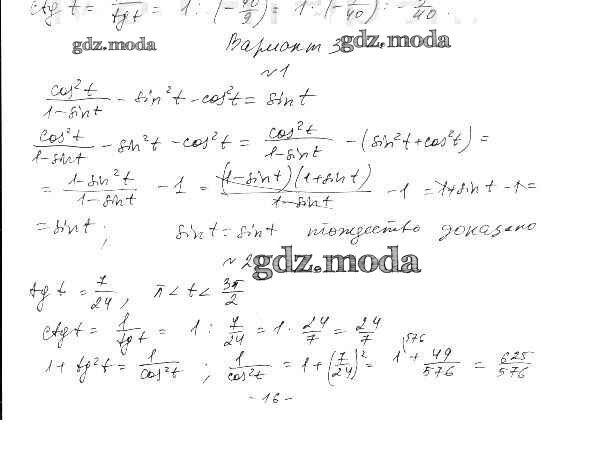 ctg t = 1/tg t = 1 : (-40/9) = 1 · (-9/40) = -9/40.
gdz.moda
Вариант 3
gdz.moda
№1
cos²t/(1-sint) - sin²t - cos²t = sint
cos²t/(1-sint) - sin²t - cos²t = cos²t/(1-sint) - (sin²t + cos²t) =
= (1-sin²t)/(1-sint) - 1 = (1-sint)(1+sint)/(1-sint) - 1 = 1+sint - 1 =
= sint; sint = sint тождество доказано
№2
gdz.moda
tg t = 7/24, π < t < 3π/2
ctg t = 1/tg t = 1 : 7/24 = 1 · 24/7 = 24/7
1 + tg²t = 1/cos²t ; 1/cos²t = 1 + (7/24)² = 1^576 + 49/576 = 625/576
- 16 -